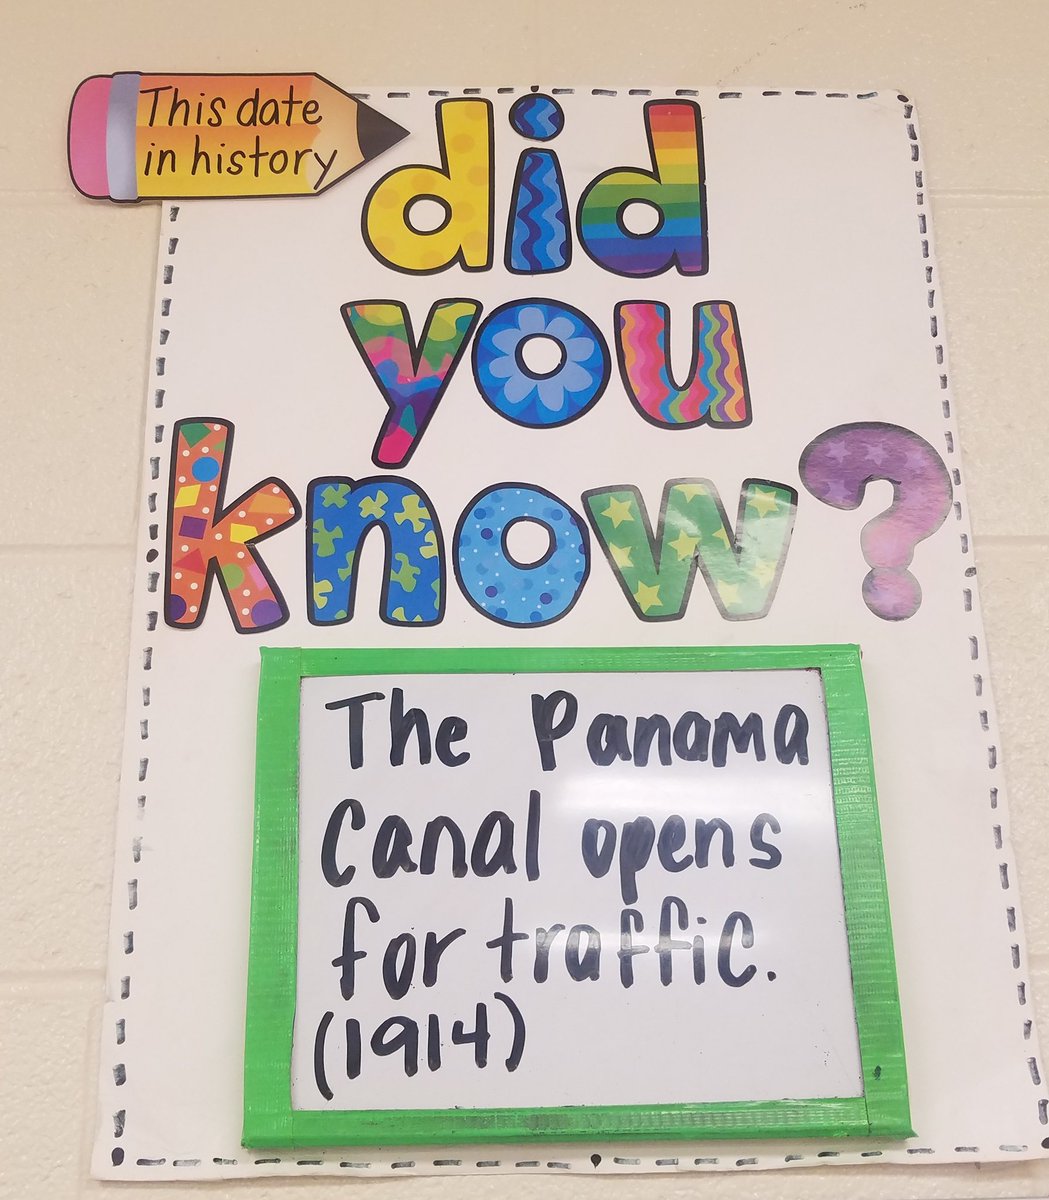 This date
in history
did
you
know?
The Panama
Canal opens
for traffic.
(1914)